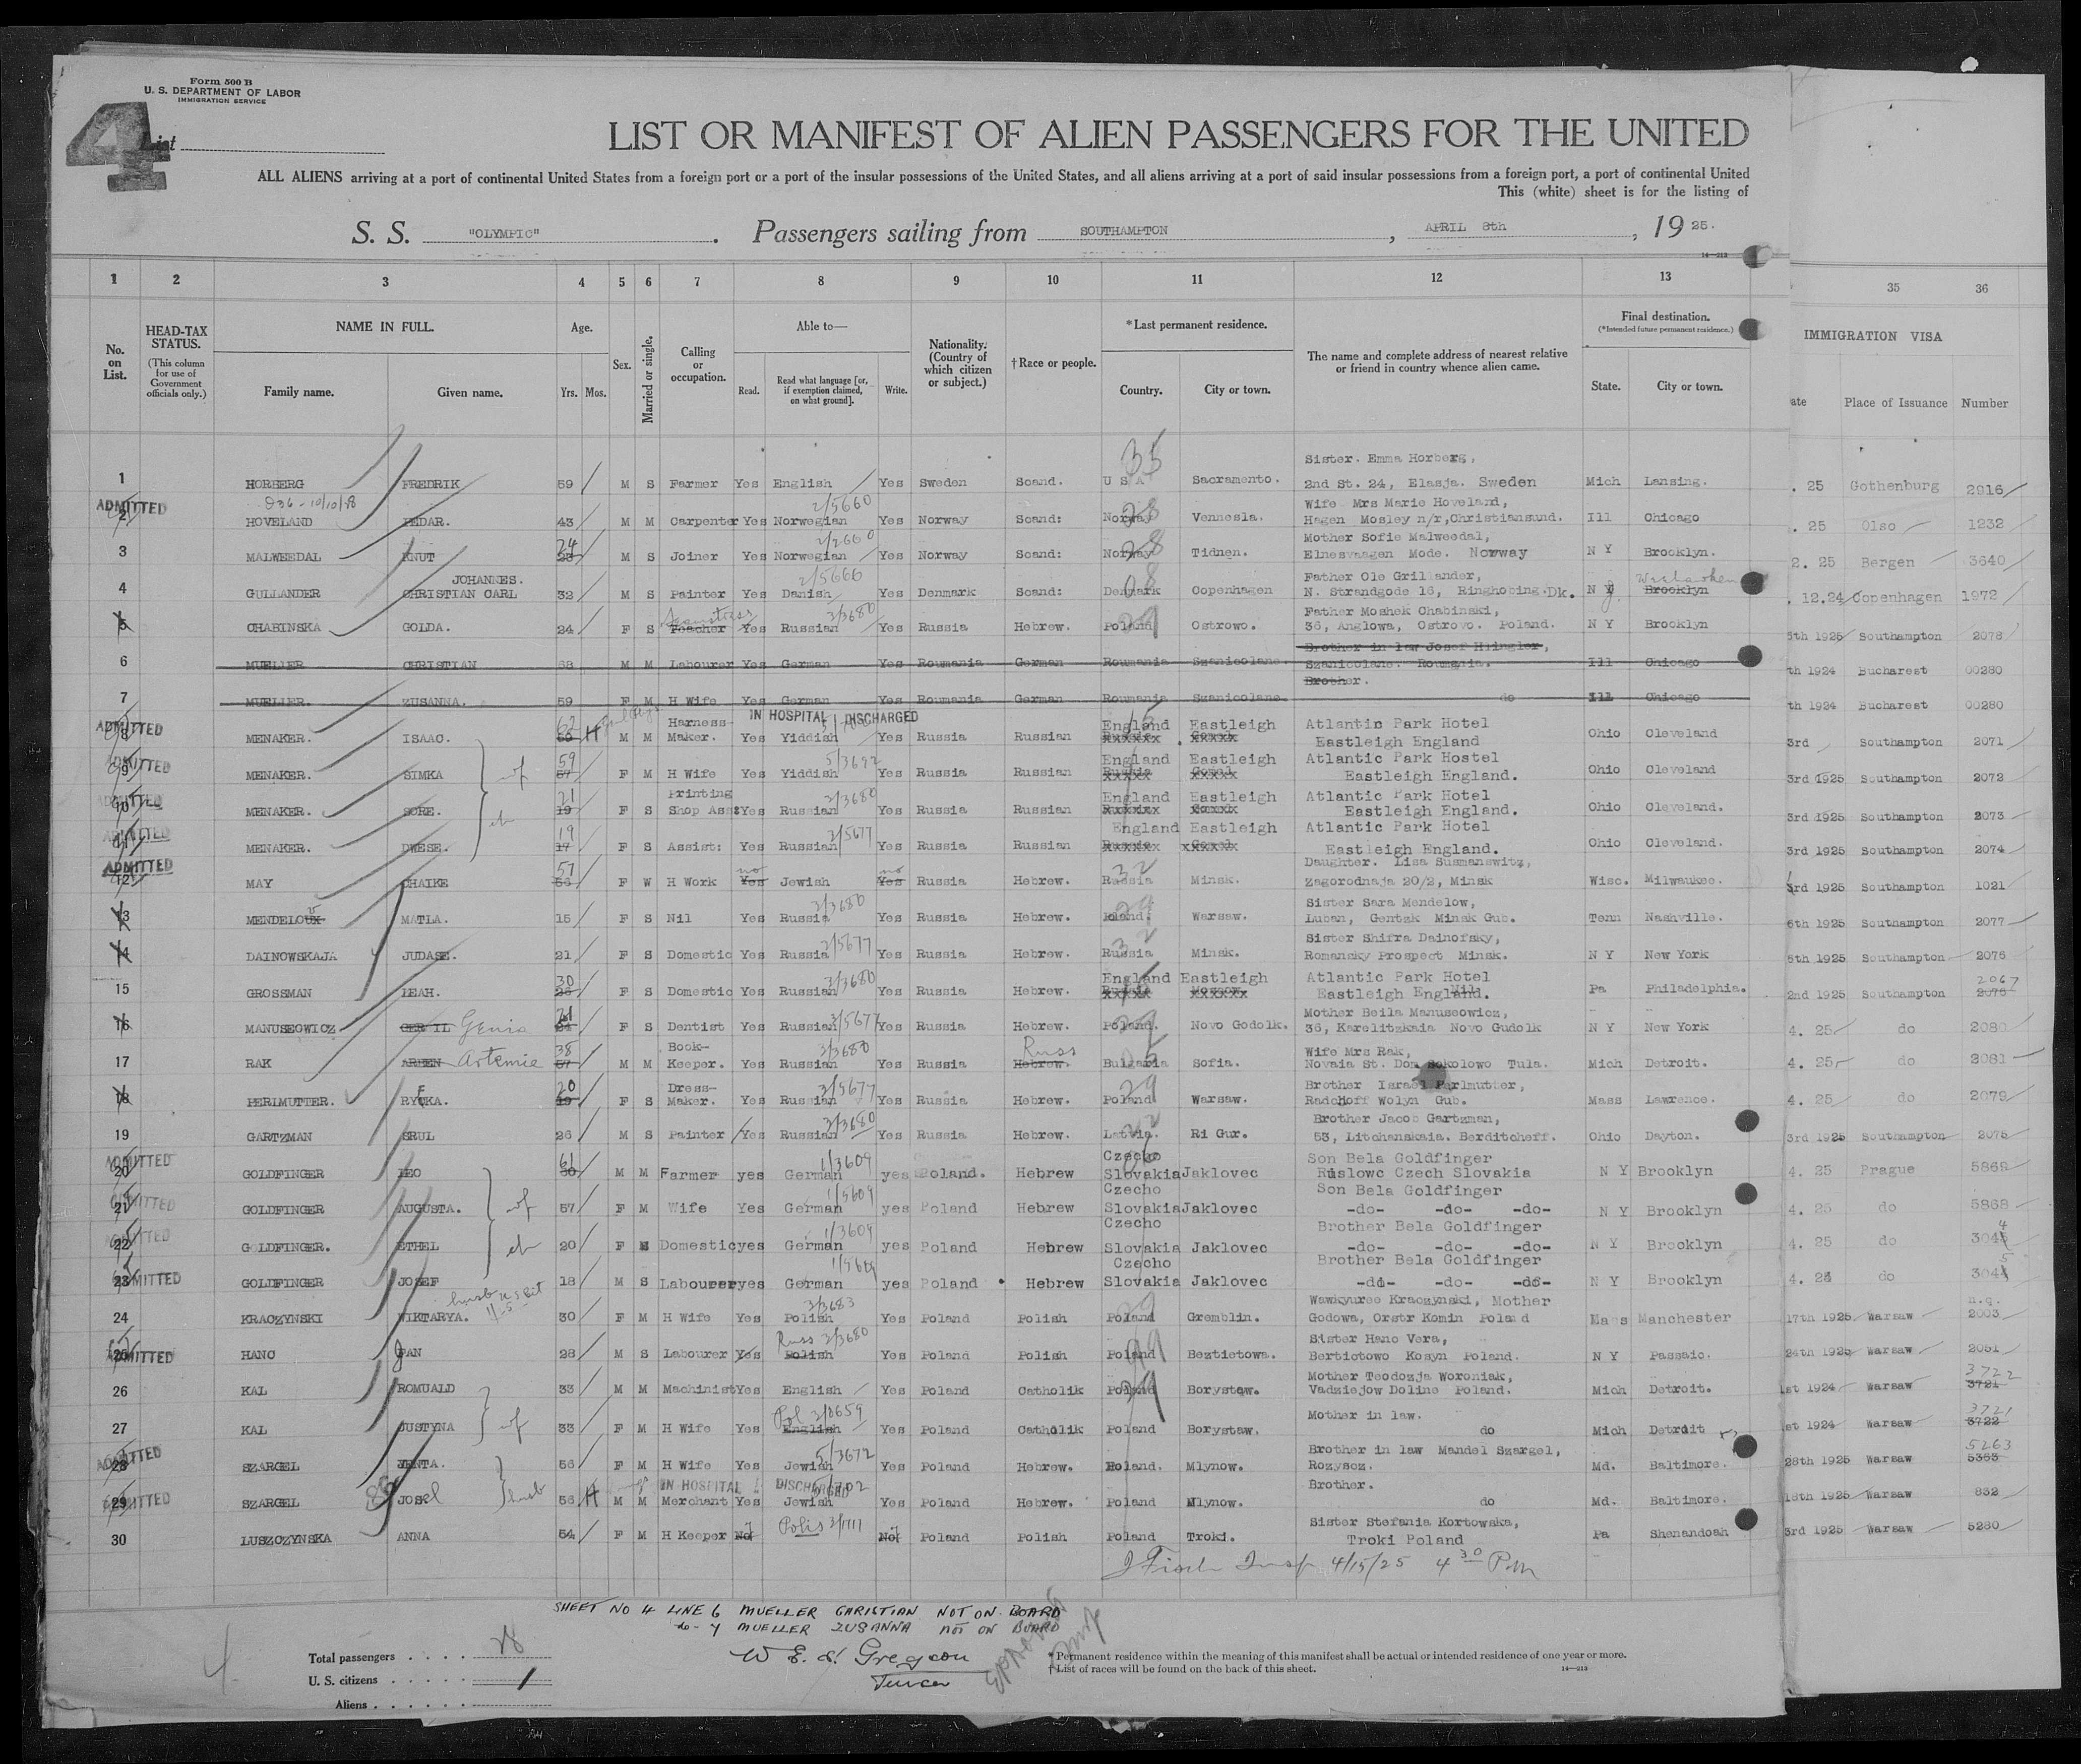 Form 500 B
U. S. DEPARTMENT OF LABOR
IMMIGRATION SERVICE
4
List
LIST OR MANIFEST OF ALIEN PASSENGERS FOR THE UNITED
ALL ALIENS arriving at a port of continental United States from a foreign port or a port of the insular possessions of the United States, and all aliens arriving at a port of said insular possessions from a foreign port, a port of continental United
This (white) sheet is for the listing of
S. S. "OLYMPIC". Passengers sailing from SOUTHAMPTON, APRIL 8th, 1925.
14—213
1 2 3 4 5 6 7 8 9 10 11 12 13 35 36
No. on List. HEAD-TAX STATUS. (This column for use of Government officials only.) NAME IN FULL. Family name. Given name. Age. Yrs. Mos. Sex. Married or single. Calling or occupation. Able to— Read. Read what language [or, if exemption claimed, on what ground]. Write. Nationality. (Country of which citizen or subject.) †Race or people. *Last permanent residence. Country. City or town. The name and complete address of nearest relative or friend in country whence alien came. Final destination. (*Intended future permanent residence.) State. City or town. IMMIGRATION VISA ate Place of Issuance Number
35 Sister. Emma Horberg,
1 HORBERG FREDRIK 59 M S Farmer Yes English Yes Sweden Scand. U S A Sacramento. 2nd St. 24, Elasja. Sweden Mich Lansing. . 25 Gothenburg 2916
ADMITTED 2/5660 Wife Mrs Marie Hoveland,
2 HOVELAND PEDAR. 43 M M Carpenter Yes Norwegian Yes Norway Scand: Norway 28 Vennesla. Hagen Mosley n/r,Christiansund. Ill Chicago . 25 Olso 1232
24 2/2660 Mother Sofie Malweedal,
3 MALWEEDAL KNUT 23 M S Joiner Yes Norwegian Yes Norway Scand: Norway 28 Tidnen. Elnesvaagen Mode. Norway N Y Brooklyn. 2. 25 Bergen 3640
JOHANNES. 2/5666 Father Ole Grillander,
4 GULLANDER CHRISTIAN CARL 32 M S Painter Yes Danish Yes Denmark Scand: Denmark Copenhagen N. Strandgode 16, Ringhobing.Dk. N Y Brooklyn . 12.24 Copenhagen 1972
3/3680 Father Moshek Chabinski,
5 CHABINSKA GOLDA. 24 F S Teacher Yes Russian Yes Russia Hebrew. Poland 29 Ostrowo. 36, Anglowa, Ostrovo. Poland. N Y Brooklyn 5th 1925 Southampton 2078
Brother in law Josef Hringler,
6 MUELLER CHRISTIAN 68 M M Labourer Yes German Yes Roumania German Roumania Szanicolane. Szanicolane. Roumania. Ill Chicago th 1924 Bucharest 00280
Brother.
7 MUELLER. ZUSANNA. 59 F M H Wife Yes German Yes Roumania German Roumania Szanicolane do Ill Chicago th 1924 Bucharest 00280
ADMITTED 62 Harness- IN HOSPITAL DISCHARGED England Eastleigh Atlantic Park Hotel
8 MENAKER. ISAAC. H M M Maker. Yes Yiddish Yes Russia Russian xxxxxx xxxxx Eastleigh England Ohio Cleveland 3rd Southampton 2071
ADMITTED 59 5/3692 England Eastleigh Atlantic Park Hostel
9 MENAKER. SIMKA 57 wf F M H Wife Yes Yiddish Yes Russia Russian Eastleigh England. Ohio Cleveland 3rd 1925 Southampton 2072
ADMITTED 21 Printing 3/3680 England Eastleigh Atlantic Park Hotel
10 MENAKER. SORE. 19 ch F S Shop Asst Yes Russian Yes Russia Russian Eastleigh England. Ohio Cleveland. 3rd 1925 Southampton 2073
ADMITTED 19 2/5677 England Eastleigh Atlantic Park Hotel
11 MENAKER. DWESE. 17 F S Assist: Yes Russian Yes Russia Russian Eastleigh England. Ohio Cleveland. 3rd 1925 Southampton 2074
ADMITTED 57 no no 32 Daughter. Lisa Susmanswitz,
12 MAY CHAIKE 56 F W H Work Yes Jewish Yes Russia Hebrew. Russia Minsk. Zagorodnaja 20/2, Minsk Wisc. Milwaukee. 3rd 1925 Southampton 1021
3/3680 Sister Sara Mendelow,
13 MENDELOUX MATLA. 15 F S Nil Yes Russia Yes Russia Hebrew. Warsaw. Luban, Gentzk Minsk Gub. Tenn Nashville. 5th 1925 Southampton 2077
2/5677 32 Sister Shifra Dainofsky,
14 DAINOWSKAJA JUDASE. 21 F S Domestic Yes Russia Yes Russia Hebrew. Russia Minsk. Romansky Prospect Minsk. N Y New York 5th 1925 Southampton 2076
30 3/3680 England Eastleigh Atlantic Park Hotel 2067
15 GROSSMAN LEAH. F S Domestic Yes Russian Yes Russia Hebrew. Eastleigh England. Pa Philadelphia. 2nd 1925 Southampton 2075
21 3/5677 Mother Beila Manuseowicz,
16 MANUSEOWICZ Genia F S Dentist Yes Russian Yes Russia Hebrew. Poland. Novo Godolk. 36, Karelitzkaia Novo Gudolk N Y New York 4. 25 do 2080
38 Book- 3/3680 Russ Wife Mrs Rak,
17 RAK ARHEN Artemie 37 M M Keeper. Yes Russian Yes Russia Hebrew. Bulgaria Sofia. Novaia St. Dom Sokolowo Tula. Mich Detroit. 4. 25 do 2081
20 Dress- 3/5677 29 Brother Israel Perlmutter,
18 PERLMUTTER. RYFKA. 19 F S Maker. Yes Russian Yes Russia Hebrew. Poland Warsaw. Radchoff Wolyn Gub. Mass Lawrence. 4. 25 do 2079
3/3680 Brother Jacob Gartzman,
19 GARTZMAN SRUL 26 M S Painter Yes Russian Yes Russia Hebrew. Latvia. Ri Gur. 53, Litchanskaia. Berditcheff. Ohio Dayton. 3rd 1925 Southampton 2075
ADMITTED 61 1/3609 Czecho Son Bela Goldfinger
20 GOLDFINGER LEO M M Farmer yes German yes Poland. Hebrew Slovakia Jaklovec Ruslowc Czech Slovakia N Y Brooklyn 4. 25 Prague 5869
ADMITTED 1/5609 Czecho Son Bela Goldfinger
21 GOLDFINGER AUGUSTA. wf 57 F M Wife Yes German yes Poland Hebrew Slovakia Jaklovec -do- -do- -do- N Y Brooklyn 4. 25 do 5868
ADMITTED 1/3609 Czecho Brother Bela Goldfinger
22 GOLDFINGER. ETHEL ch 20 F Domestic yes German yes Poland Hebrew Slovakia Jaklovec -do- -do- -do- N Y Brooklyn 4. 25 do 304
ADMITTED 1/5609 Czecho Brother Bela Goldfinger
23 GOLDFINGER JOSEF 18 M S Labourer yes German yes Poland Hebrew Slovakia Jaklovec -do- -do- -do- N Y Brooklyn 4. 25 do 304
3/3683 29 Wawkyuree Kraczynski, Mother n.q.
24 KRACZYNSKI WIKTARYA. 30 F M H Wife Yes Polish Yes Poland Polish Poland Gremblin. Godowa, Orstr Komin Poland Mass Manchester 17th 1925 Warsaw 2003
ADMITTED Russ 3/3680 Sister Hano Vera,
25 HANC JAN 28 M S Labourer Yes Polish Yes Poland Polish Poland Beztietowa. Bertictowo Kosyn Poland. N Y Passaic. 24th 1925 Warsaw 2051
Mother Teodozja Woroniak, 3722
26 KAL ROMUALD 33 M M Machinist Yes English Yes Poland Catholik Poland 29 Borystow. Vadziejow Doline Poland. Mich Detroit. 1st 1924 Warsaw 3721
Pol 3/8659 Mother in law. 3721
27 KAL JUSTYNA wf 33 F M H Wife Yes English Yes Poland Catholik Poland Borystaw. do Mich Detroit st 1924 Warsaw 3722
ADMITTED 5/3672 Brother in law Mandel Szargel, 5263
28 SZARGEL JENTA. 56 F M H Wife Yes Jewish Yes Poland Hebrew. Poland. Mlynow. Rozysoz. Md. Baltimore. 28th 1925 Warsaw 5353
ADMITTED IN HOSPITAL DISCHARGED Brother.
29 SZARGEL JOSEL husb 56 H M M Merchant Yes Jewish Yes Poland Hebrew. Poland Mlynow. do Md. Baltimore. 18th 1925 Warsaw 832
Polis 3/1111 Sister Stefania Kortowska,
30 LUSZCZYNSKA ANNA 54 F M H Keeper No Not Poland Polish Poland Troki. Troki Poland Pa Shenandoah 3rd 1925 Warsaw 5280
4/15/25 4 30 P.M
SHEET NO 4 LINE 6 MUELLER CHRISTIAN NOT ON BOARD
do- 7 MUELLER ZUSANNA NOT ON BOARD
4
Total passengers 28
U. S. citizens
Aliens
* Permanent residence within the meaning of this manifest shall be actual or intended residence of one year or more.
† List of races will be found on the back of this sheet.
14—213